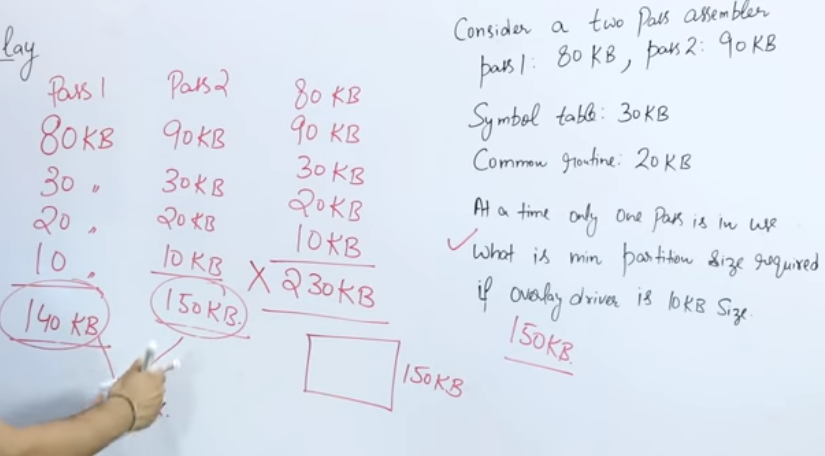 lay
Pass 1
80KB
30 "
20 "
10 "
140 KB
Pass 2
90KB
30KB
20KB
10 KB
150KB.
80 KB
90 KB
30 KB
20KB
10KB
X 230KB
150KB
Consider a two Pass assembler
pass 1: 80 KB, pass 2: 90 KB
Symbol table: 30KB
Common routine: 20 KB
At a time only one Pass is in use
✓ What is min partition size required
if overlay driver is 10KB Size.
150KB.